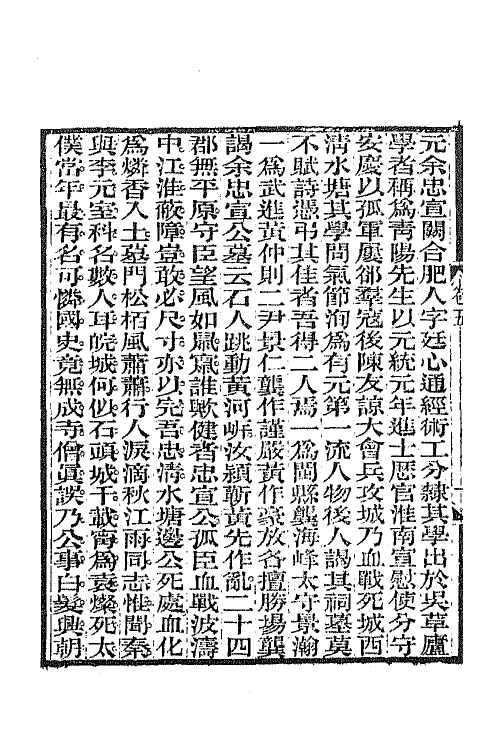 元余忠宣闕合肥人字廷心通經術工分隸其學出於吳草廬
學者稱爲靑陽先生以元統元年進士歷官淮南宣慰使分守
安慶以孤軍屢郤羣寇後陳友諒大會兵攻城乃血戰死城西
淸水塘其學問氣節洵爲有元第一流人物後人謁其祠墓莫
不賦詩憑弔其佳者吾得二人焉一爲閩縣龔海峰太守景瀚
一爲武進黃仲則二尹景仁龔作謹嚴黃作豪放各擅勝場龔
謁余忠宣公墓云石人跳動黃河岍汝潁蘄黃先作亂二十四
郡無平原守臣望風如鳥竄誰歟健者忠宣公孤臣血戰波濤
中江淮蔽障豈敢必尺寸亦以完吾忠淸水塘邊公死處血化
爲燐香入土墓門松栢風蕭蕭行人淚滴秋江雨同志惟聞秦
與李元室科名數人耳皖城何似石頭城千載甯爲袁粲死太
僕當年最有名可憐國史竟無成寺僧眞誤乃公事白髮興朝
卷五